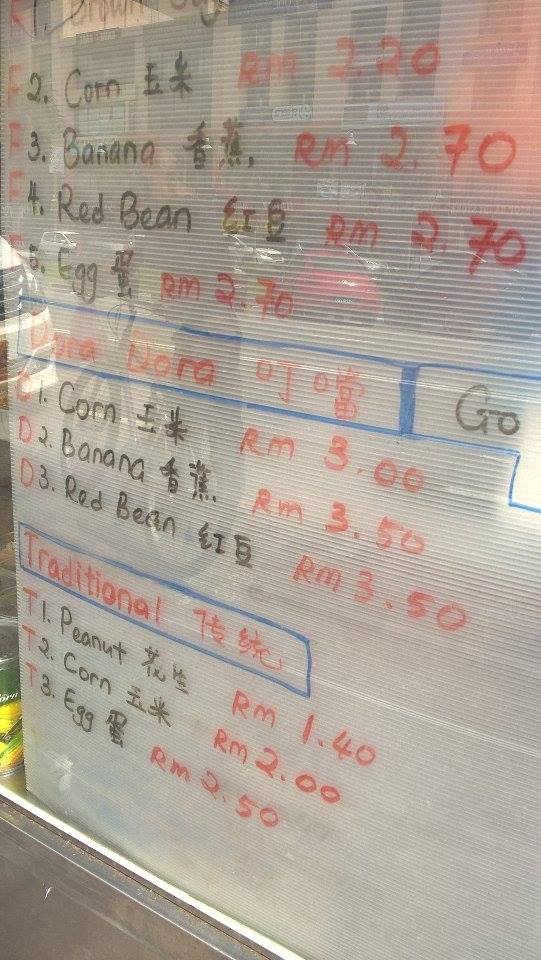 F 1. Brown
F 2. Corn 玉米 Rm 2.20
F 3. Banana 香蕉, Rm 2.70
F 4. Red Bean 红豆 Rm 2.70
F 5. Egg 蛋 Rm 2.70
Dora Dora 叮噹
Go
D 1. Corn 玉米 Rm 3.00
D 2. Banana 香蕉, Rm 3.50
D 3. Red Bean 红豆 Rm 3.50
Traditional 传统
T 1. Peanut 花生 Rm 1.40
T 2. Corn 玉米 Rm 2.00
T 3. Egg 蛋 Rm 2.50